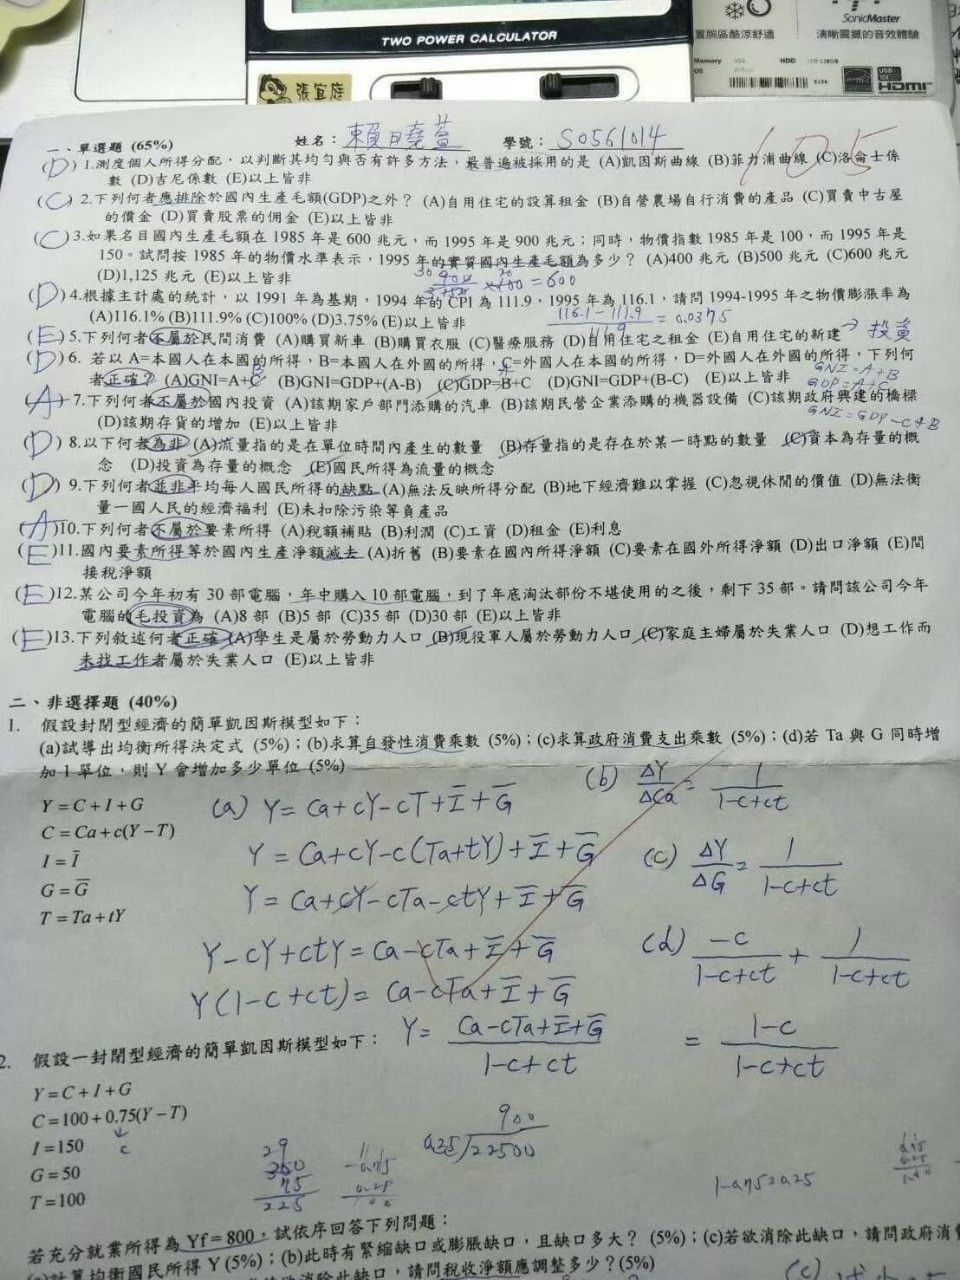 TWO POWER CALCULATOR
張宜庭
SonicMaster
置腕區酷涼舒適
清晰震撼的音效體驗
Memory
HDD
OS
HDMI
105
一、單選題 (65%) 姓名： 賴日堯萱 學號： S0561014
(D) 1.測度個人所得分配，以判斷其均勻與否有許多方法，最普遍被採用的是 (A)凱因斯曲線 (B)菲力浦曲線 (C)洛侖士係
數 (D)吉尼係數 (E)以上皆非
(C) 2.下列何者應排除於國內生產毛額(GDP)之外？ (A)自用住宅的設算租金 (B)自營農場自行消費的產品 (C)買賣中古屋
的價金 (D)買賣股票的佣金 (E)以上皆非
(C) 3.如果名目國內生產毛額在 1985 年是 600 兆元，而 1995 年是 900 兆元；同時，物價指數 1985 年是 100，而 1995 年是
150。試問按 1985 年的物價水準表示，1995 年的實質國內生產毛額為多少？ (A)400 兆元 (B)500 兆元 (C)600 兆元
(D)1,125 兆元 (E)以上皆非
900/150 ×100 = 600
(D) 4.根據主計處的統計，以 1991 年為基期，1994 年的 CPI 為 111.9，1995 年為 116.1，請問 1994-1995 年之物價膨漲率為
(A)116.1% (B)111.9% (C)100% (D)3.75% (E)以上皆非
116.1-111.9/111.9 = 0.0375
(E) 5.下列何者不屬於民間消費 (A)購買新車 (B)購買衣服 (C)醫療服務 (D)自用住宅之租金 (E)自用住宅的新建 → 投資
(D) 6. 若以 A=本國人在本國的所得，B=本國人在外國的所得，C=外國人在本國的所得，D=外國人在外國的所得，下列何
者正確？ (A)GNI=A+C (B)GNI=GDP+(A-B) (C)GDP=B+C (D)GNI=GDP+(B-C) (E)以上皆非
GNI=A+B
GDP=A+C
GNI=GDP-C+B
(A) 7.下列何者不屬於國內投資 (A)該期家戶部門添購的汽車 (B)該期民營企業添購的機器設備 (C)該期政府興建的橋樑
(D)該期存貨的增加 (E)以上皆非
(D) 8.以下何者為非 (A)流量指的是在單位時間內產生的數量 (B)存量指的是存在於某一時點的數量 (C)資本為存量的概
念 (D)投資為存量的概念 (E)國民所得為流量的概念
(D) 9.下列何者並非平均每人國民所得的缺點 (A)無法反映所得分配 (B)地下經濟難以掌握 (C)忽視休閒的價值 (D)無法衡
量一國人民的經濟福利 (E)未扣除污染等負產品
(A)10.下列何者不屬於要素所得 (A)稅額補貼 (B)利潤 (C)工資 (D)租金 (E)利息
(E)11.國內要素所得等於國內生產淨額減去 (A)折舊 (B)要素在國內所得淨額 (C)要素在國外所得淨額 (D)出口淨額 (E)間
接稅淨額
(E)12.某公司今年初有 30 部電腦，年中購入 10 部電腦，到了年底淘汰部份不堪使用的之後，剩下 35 部。請問該公司今年
電腦的毛投資為 (A)8 部 (B)5 部 (C)35 部 (D)30 部 (E)以上皆非
(E)13.下列敘述何者正確 (A)學生是屬於勞動力人口 (B)現役軍人屬於勞動力人口 (C)家庭主婦屬於失業人口 (D)想工作而
未找工作者屬於失業人口 (E)以上皆非
二、非選擇題 (40%)
1. 假設封閉型經濟的簡單凱因斯模型如下：
(a)試導出均衡所得決定式 (5%)；(b)求算自發性消費乘數 (5%)；(c)求算政府消費支出乘數 (5%)；(d)若 Ta 與 G 同時增
加 1 單位，則 Y 會增加多少單位 (5%)
Y = C + I + G
C = Ca + c(Y − T)
I = Ī
G = G̅
T = Ta + tY
(a) Y= Ca+cY-cT+Ī+G̅
Y = Ca+cY-c(Ta+tY)+Ī+G̅
Y= Ca+cY-cTa-ctY+Ī+G̅
Y-cY+ctY= Ca-cTa+Ī+G̅
Y(1-c+ct)= Ca-cTa+Ī+G̅
Y= Ca-cTa+Ī+G̅/1-c+ct
(b) ΔY/ΔCa = 1/1-c+ct
(c) ΔY/ΔG = 1/1-c+ct
(d) -c/1-c+ct + 1/1-c+ct
= 1-c/1-c+ct
2. 假設一封閉型經濟的簡單凱因斯模型如下：
Y = C + I + G
C = 100 + 0.75(Y − T)
c
I = 150
G = 50
T = 100
300
75
225
900
0.25/22500
1-0.75=0.25
若充分就業所得為 Yf = 800，試依序回答下列問題：
計算均衡國民所得 Y (5%)；(b)此時有緊縮缺口或膨脹缺口，且缺口多大？ (5%)；(c)若欲消除此缺口，請問政府消
消除此缺口，請問稅收淨額應調整多少？(5%)
(c)